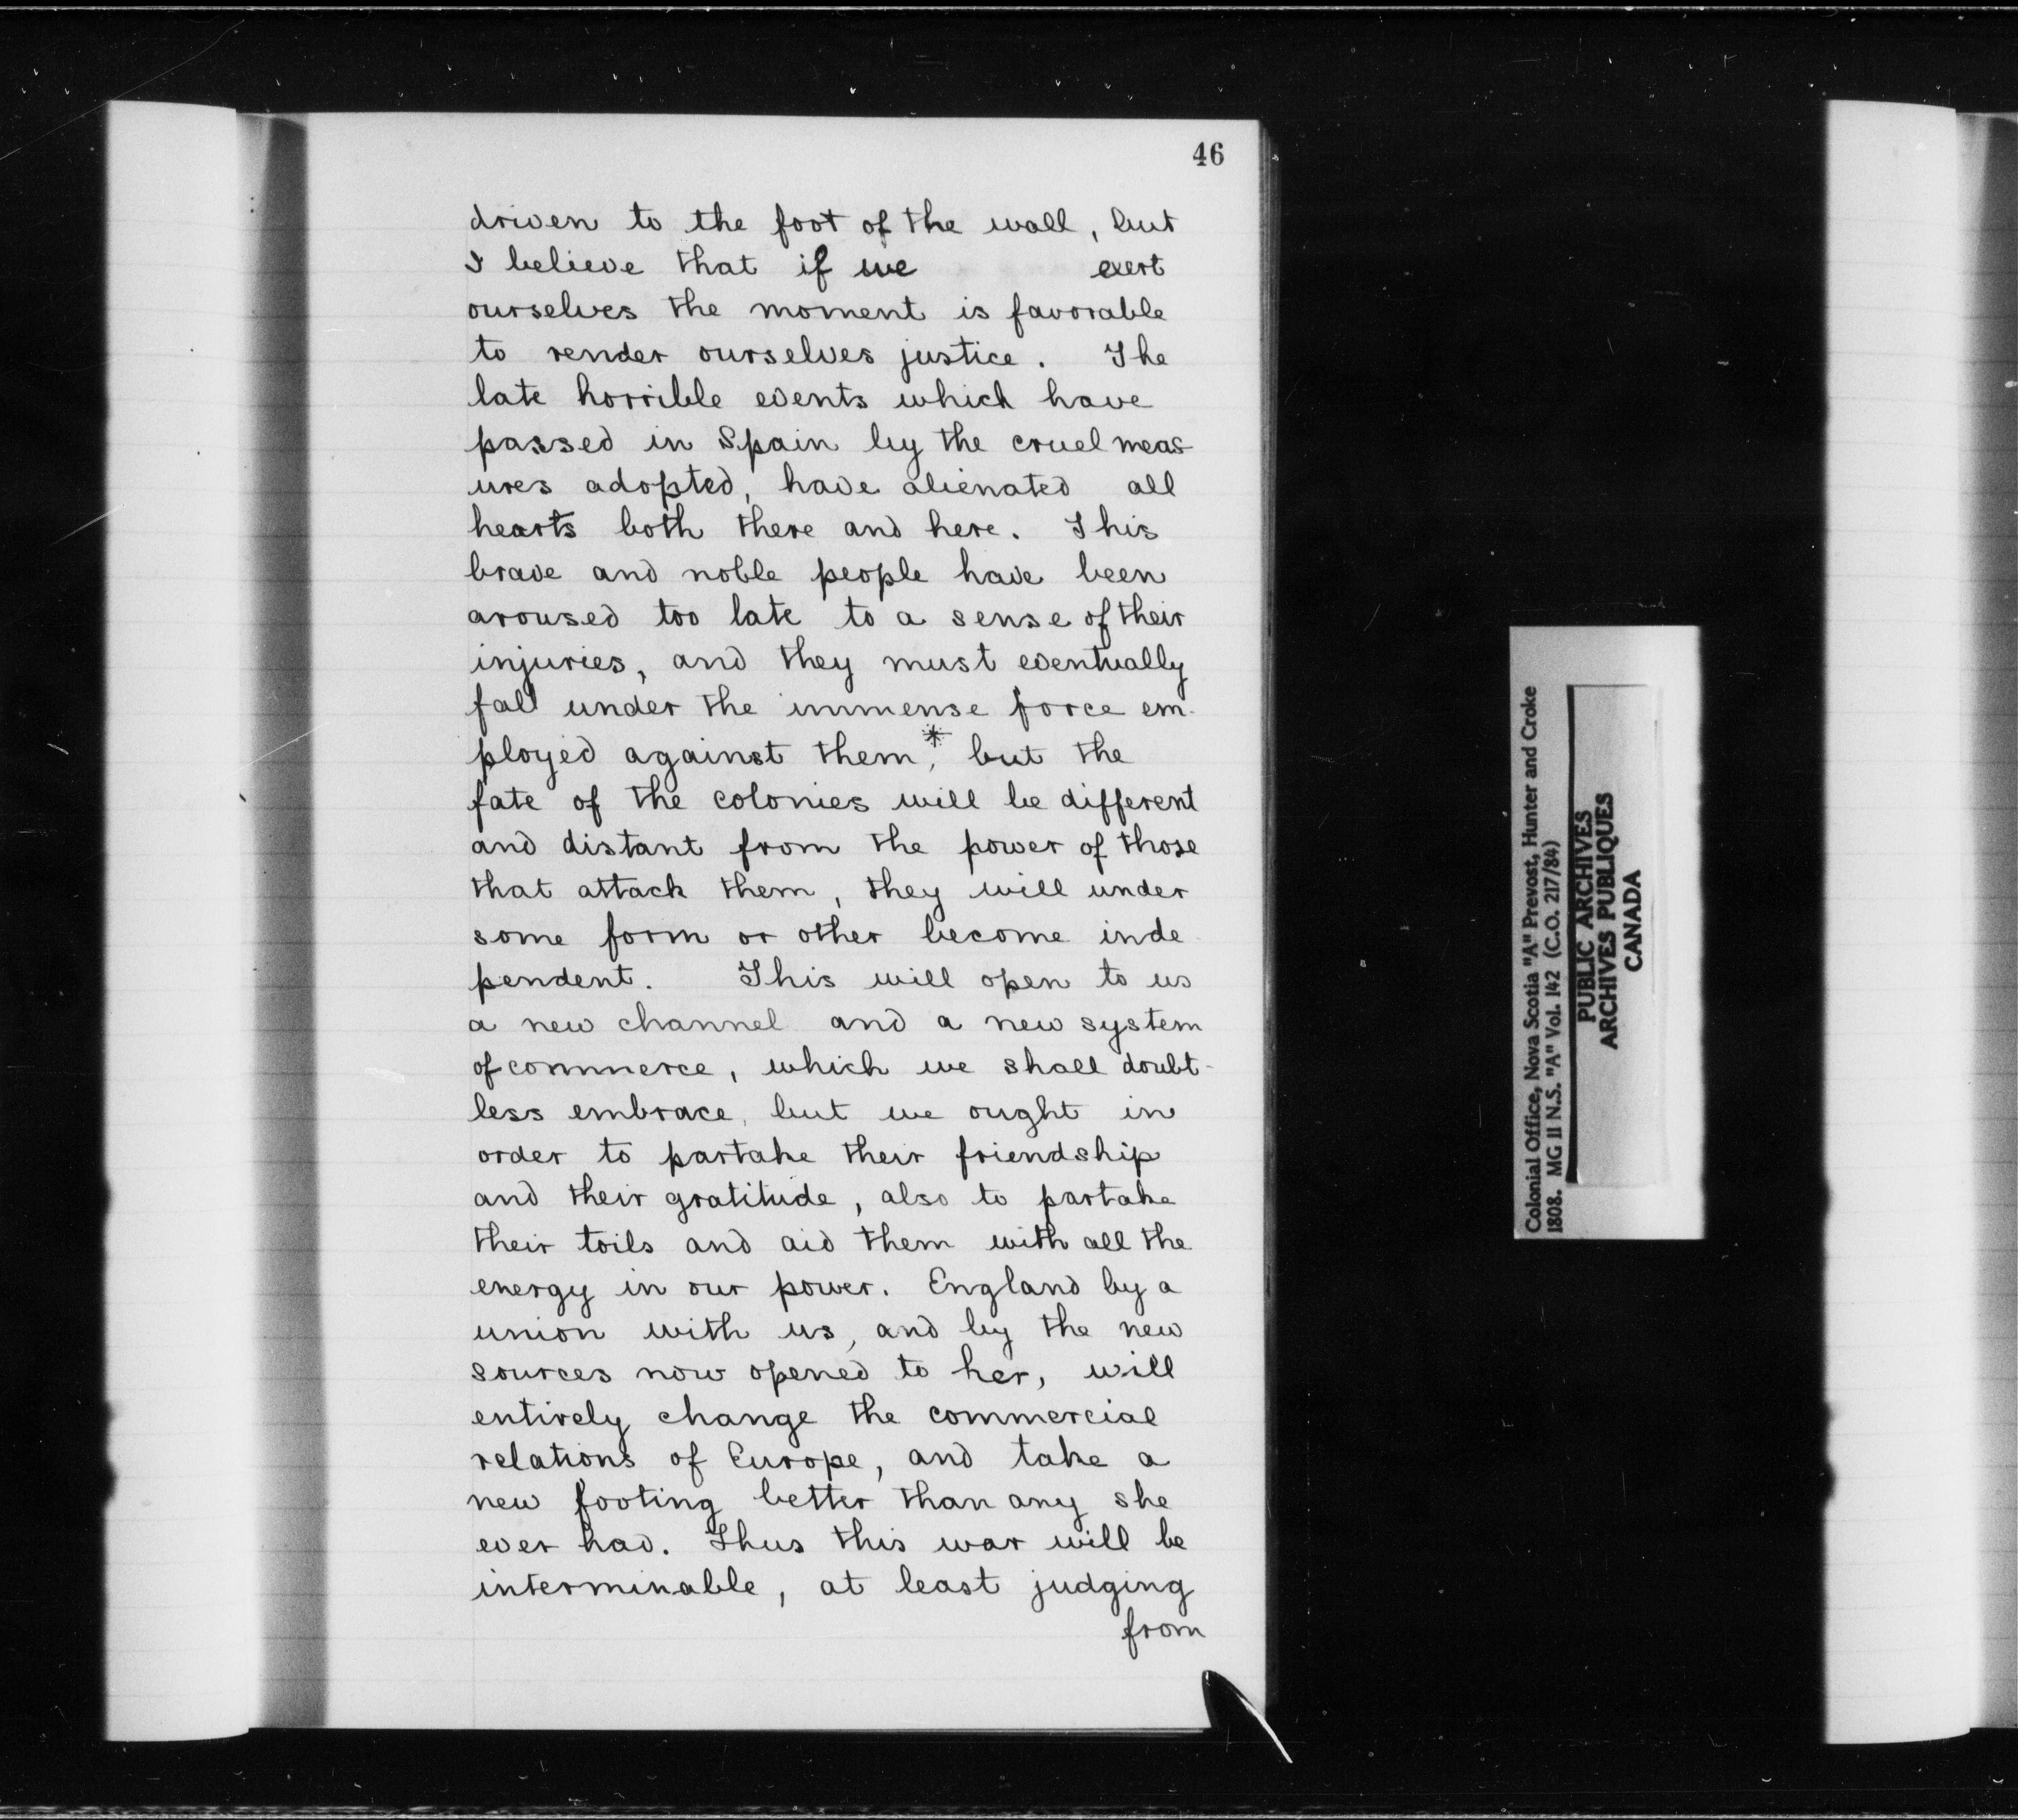 46
driven to the foot of the wall, but
I believe that if we exert
ourselves the moment is favorable
to render ourselves justice. The
late horrible events which have
passed in Spain by the cruel meas-
ures adopted, have alienated all
hearts both there and here. This
brave and noble people have been
aroused too late to a sense of their
injuries, and they must eventually
fall under the immense force em-
ployed against them,* but the
fate of the colonies will be different
and distant from the power of those
that attack them, they will under
some form or other become inde-
pendent. This will open to us
a new channel and a new system
of commerce, which we shall doubt-
less embrace, but we ought in
order to partake their friendship
and their gratitude, also to partake
their toils and aid them with all the
energy in our power. England by a
union with us, and by the new
sources now opened to her, will
entirely change the commercial
relations of Europe, and take a
new footing better than any she
ever had. Thus this war will be
interminable, at least judging
from
Colonial Office, Nova Scotia "A" Prevost, Hunter and Croke
1808. MG 11 N.S. "A" Vol. 142 (C.O. 217/84)
PUBLIC ARCHIVES
ARCHIVES PUBLIQUES
CANADA